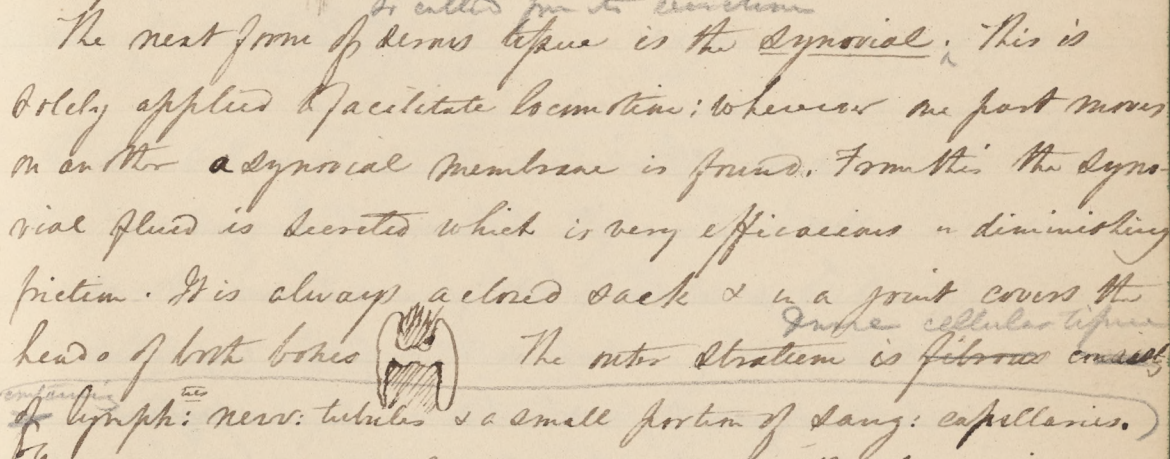 So called from its secretions
The next form of serous tissue is the synovial. This is
solely applied to facilitate locomotion: wherever one part moves
on another a synovial membrane is found. From this the syno-
vial fluid is secreted which is very efficacious in diminishing
friction. It is always a closed sack & in a joint covers the
Dense cellular tissue
heads of both bones The outer stratum is fibrous consists
containing
of lymph: nerv: tubules & a small portion of sang: capillaries.